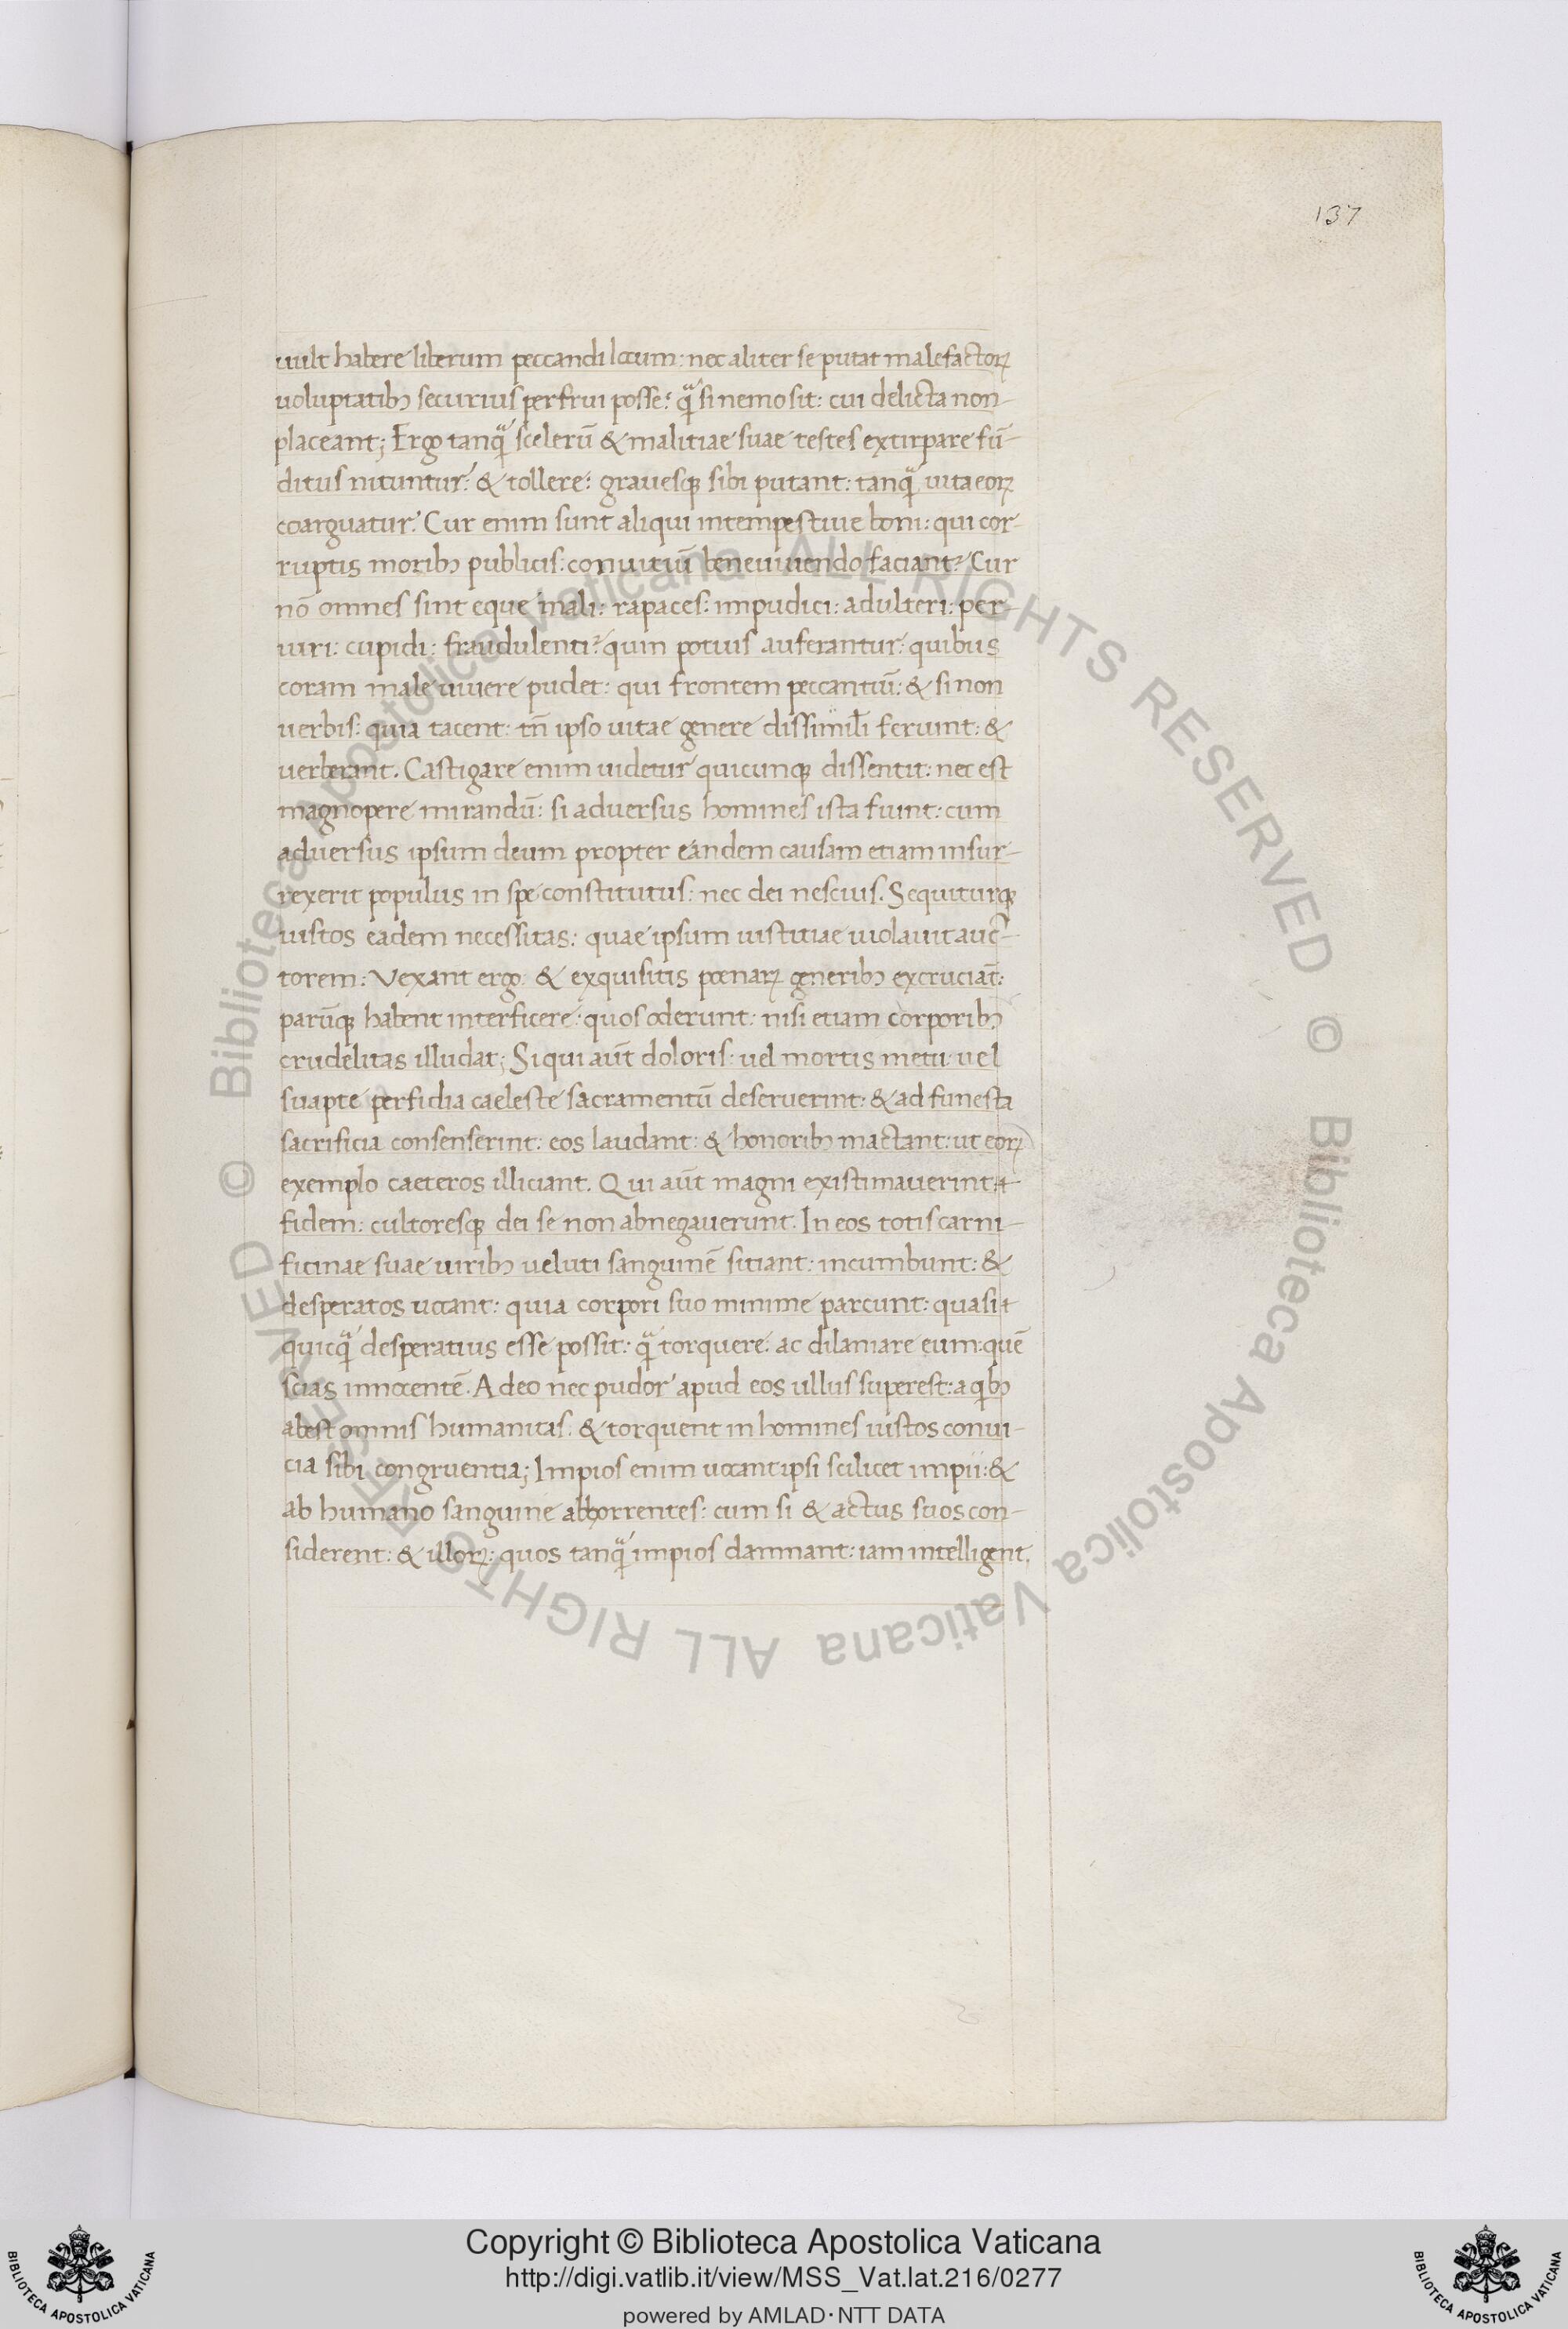 137
uult habere liberum peccandi locum: nec aliter se putat malefactoꝝ
uoluptatibꝫ securius perfrui posse: qͣ̃ si nemo sit: cui delicta non-
placeant; Ergo tanqͣ̃ scelerū & malitiae suae testes extirpare fū-
ditus nituntur: & tollere: grauesqꝫ sibi putant: tanqͣ̃ uita eoꝝ
coarguatur. Cur enim sunt aliqui intempestiue boni: qui cor-
ruptis moribꝫ publicis: conuitiū bene uiuendo faciant? Cur
nō omnes sint eque mali: rapaces: impudici: adulteri: per-
iuri: cupidi: fraudulenti? quin potius auferantur: quibus
coram male uiuere pudet: qui frontem peccantiū: & si non
uerbis: quia tacent: tn̄ ipso uitae genere dissimili feriunt: &
uerberant. Castigare enim uidetur quicunqꝫ dissentit: nec est
magnopere mirandū: si aduersus homines ista fiunt: cum
aduersus ipsum deum propter eandem causam etiam insur-
rexerit populus in spe constitutus: nec dei nescius. Sequiturqꝫ
iustos eadem necessitas: quae ipsum iustitiae uiolauit auc-
torem: Vexant ergo: & exquisitis poenaꝝ generibꝫ excruciāt:
parūqꝫ habent interficere: quos oderunt: nisi etiam corporibꝫ
crudelitas illudat; Si qui aūt doloris: uel mortis metu: uel
suapte perfidia caeleste sacramentū deseruerint: & ad funesta
sacrificia consenserint: eos laudant: & honoribꝫ mactant: ut eoꝝ
exemplo caeteros illiciant. Qui aūt magni existimauerint
fidem: cultoresqꝫ dei se non abnegauerunt. In eos totis carni-
ficinae suae uiribꝫ ueluti sanguinē sitiant: incumbunt: &
desperatos uocant: quia corpori suo minime parcunt: quasi
quicqͣ̃ desperatius esse possit: qͣ̃ torquere: ac dilaniare eum: quē
scias innocentē. Adeo nec pudor apud eos ullus superest: a qͥbꝫ
abest omnis humanitas: & torquent in homines iustos conui-
cia sibi congruentia; Impios enim uocant ipsi scilicet impii: &
ab humano sanguine abhorrentes: cum si & actus suos con-
siderent: & illoꝝ: quos tanqͣ̃ impios damnant: iam intelligent.
© Biblioteca Apostolica Vaticana ALL RIGHTS RESERVED © Biblioteca Apostolica Vaticana ALL RIGHTS RESERVED
BIBLIOTECA APOSTOLICA VATICANA
Copyright © Biblioteca Apostolica Vaticana
http://digi.vatlib.it/view/MSS_Vat.lat.216/0277
powered by AMLAD·NTT DATA
BIBLIOTECA APOSTOLICA VATICANA